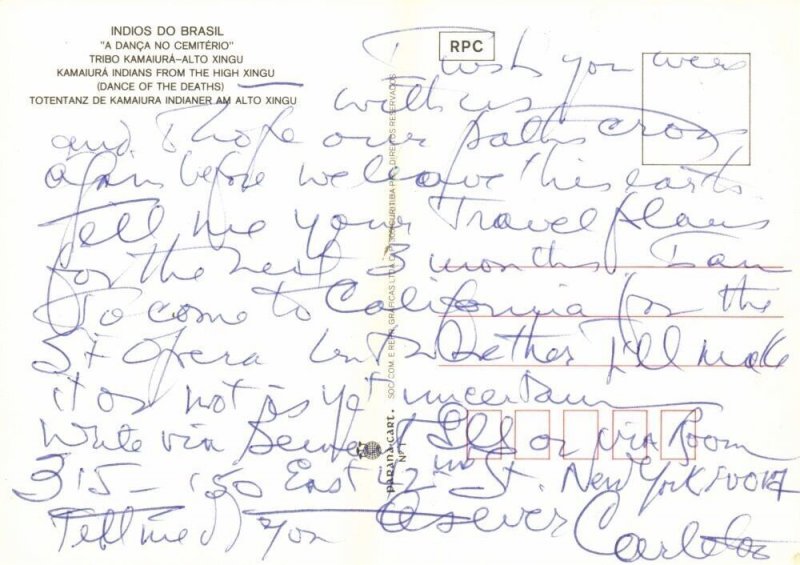 INDIOS DO BRASIL
"A DANÇA NO CEMITÉRIO"
TRIBO KAMAIURÁ-ALTO XINGU
KAMAIURÁ INDIANS FROM THE HIGH XINGU
(DANCE OF THE DEATHS)
TOTENTANZ DE KAMAIURA INDIANER AM ALTO XINGU
RPC
I wish you were
with us
and I hope our paths cross
again before we leave this earth
Tell me your Travel plans
for the next 3 months I am
To come to California for the
Opera but whether I'll make
it or not is yet uncertain
Write via or via Room
315 - 150 East 42nd St. New York 10017
Tell me) you as ever Carleton
PARANÁ-CART.